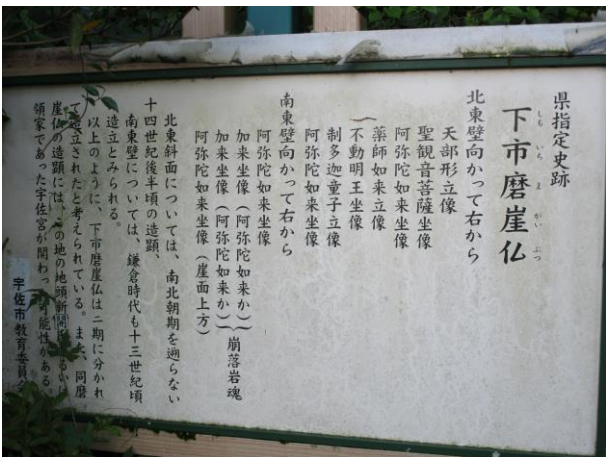 県指定史跡
下市磨崖仏
しもいちまがいぶつ
北東壁向かって右から
天部形立像
聖観音菩薩坐像
阿弥陀如来坐像
薬師如来立像
不動明王坐像
制多迦童子立像
阿弥陀如来坐像
南東壁向かって右から
阿弥陀如来坐像
如来坐像(阿弥陀如来か)
如来坐像(阿弥陀如来か)
崩落岩魂
阿弥陀如来坐像(崖面上方)
北東斜面については、南北朝期を遡らない
十四世紀後半頃の造顕、
南東壁については、鎌倉時代も十三世紀頃
造立とみられる。
以上のように、下市磨崖仏は二期に分かれ
て造立されたと考えられている。また、同磨
崖仏の造顕には、この地の地頭新開氏あるいは
領家であった宇佐宮が関わった可能性がある。
宇佐市教育委員会